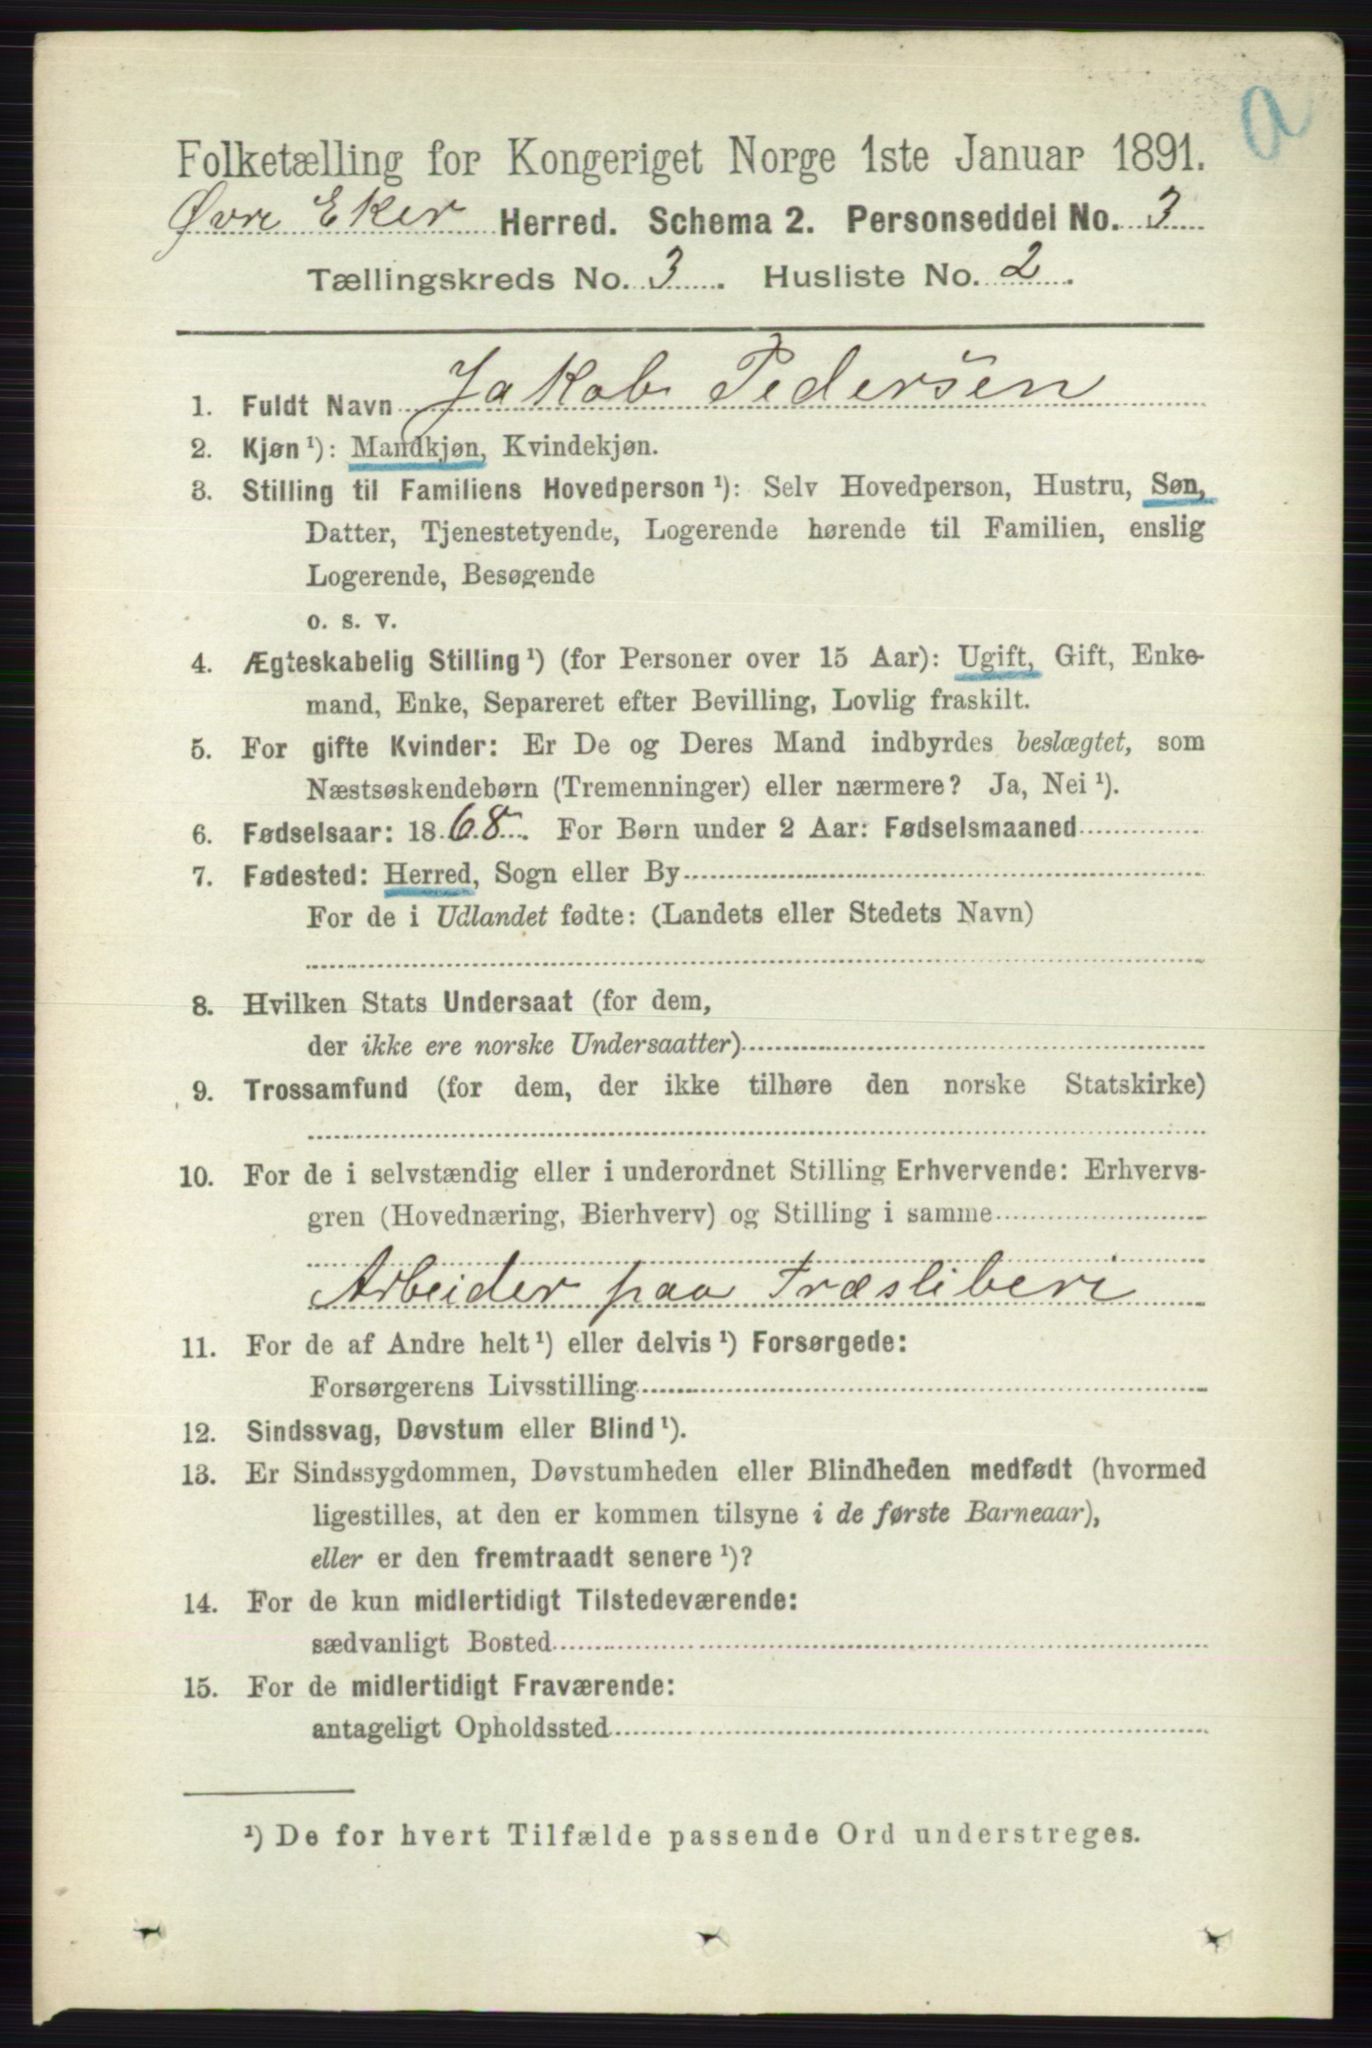 a
Folketælling for Kongeriget Norge 1ste Januar 1891.
Øvre Eker Herred. Schema 2. Personseddel No. 3
Tællingskreds No. 3. Husliste No. 2.
1. Fuldt Navn Jakob Pedersen
2. Kjøn ¹): Mandkjøn, Kvindekjøn.
3. Stilling til Familiens Hovedperson ¹): Selv Hovedperson, Hustru, Søn,
Datter, Tjenestetyende, Logerende hørende til Familien, enslig
Logerende, Besøgende
o. s. v.
4. Ægteskabelig Stilling ¹) (for Personer over 15 Aar): Ugift, Gift, Enke-
mand, Enke, Separeret efter Bevilling, Lovlig fraskilt.
5. For gifte Kvinder: Er De og Deres Mand indbyrdes beslægtet, som
Næstsøskendebørn (Tremenninger) eller nærmere? Ja, Nei ¹).
6. Fødselsaar: 1868. For Børn under 2 Aar: Fødselsmaaned
7. Fødested: Herred, Sogn eller By
For de i Udlandet fødte: (Landets eller Stedets Navn)
8. Hvilken Stats Undersaat (for dem,
der ikke ere norske Undersaatter)
9. Trossamfund (for dem, der ikke tilhøre den norske Statskirke)
10. For de i selvstændig eller i underordnet Stilling Erhvervende: Erhvervs-
gren (Hovednæring, Bierhverv) og Stilling i samme
Arbeider paa Træsliberi
11. For de af Andre helt ¹) eller delvis ¹) Forsørgede:
Forsørgerens Livsstilling
12. Sindssvag, Døvstum eller Blind ¹).
13. Er Sindssygdommen, Døvstumheden eller Blindheden medfødt (hvormed
ligestilles, at den er kommen tilsyne i de første Barneaar),
eller er den fremtraadt senere ¹)?
14. For de kun midlertidigt Tilstedeværende:
sædvanligt Bosted
15. For de midlertidigt Fraværende:
antageligt Opholdssted
¹) De for hvert Tilfælde passende Ord understreges.